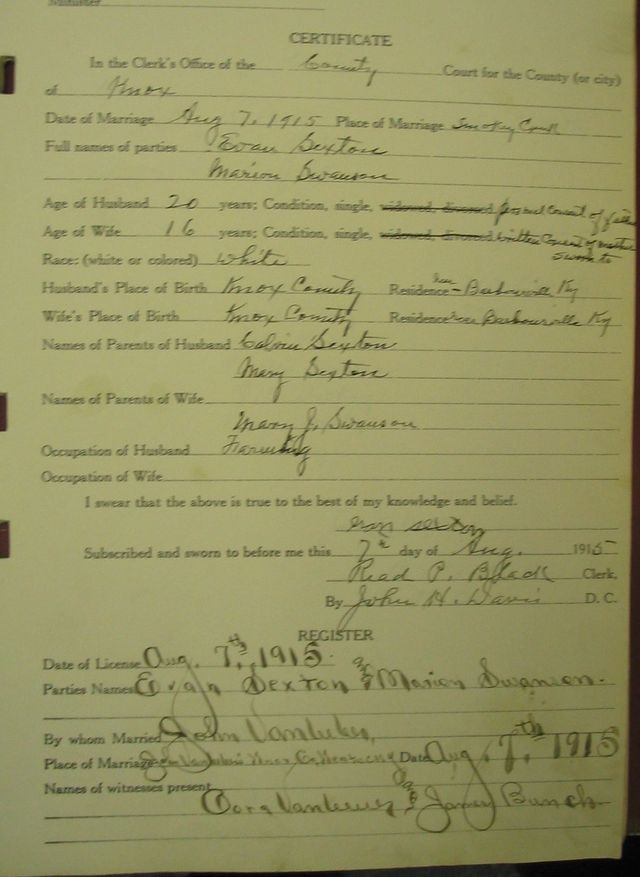 Minister
CERTIFICATE
In the Clerk's Office of the County Court for the County (or city)
of Knox
Date of Marriage Aug 7, 1915 Place of Marriage Smokey Creek
Full names of parties Evan Sexton
Marion Swanson
Age of Husband 20 years; Condition, single, widowed, divorced, personal consent of father
Age of Wife 16 years; Condition, single, widowed, divorced written consent of mother
sworn to
Race: (white or colored) White
Husband's Place of Birth Knox County Residence near Barbourville Ky
Wife's Place of Birth Knox County Residence near Barbourville Ky
Names of Parents of Husband Calvin Sexton
Mary Sexton
Names of Parents of Wife
Mary J. Swanson
Occupation of Husband Farming
Occupation of Wife
I swear that the above is true to the best of my knowledge and belief.
evan sexton
Subscribed and sworn to before me this 7th day of Aug. 1915
Read P. Black Clerk.
By John H. Davis D. C.
REGISTER
Date of License Aug. 7th, 1915.
Parties Names Evan Sexton and Marion Swanson.
By whom Married John
Place of Marriage Date Aug. 7th 1915
Names of witnesses present
Cora and James Bunch